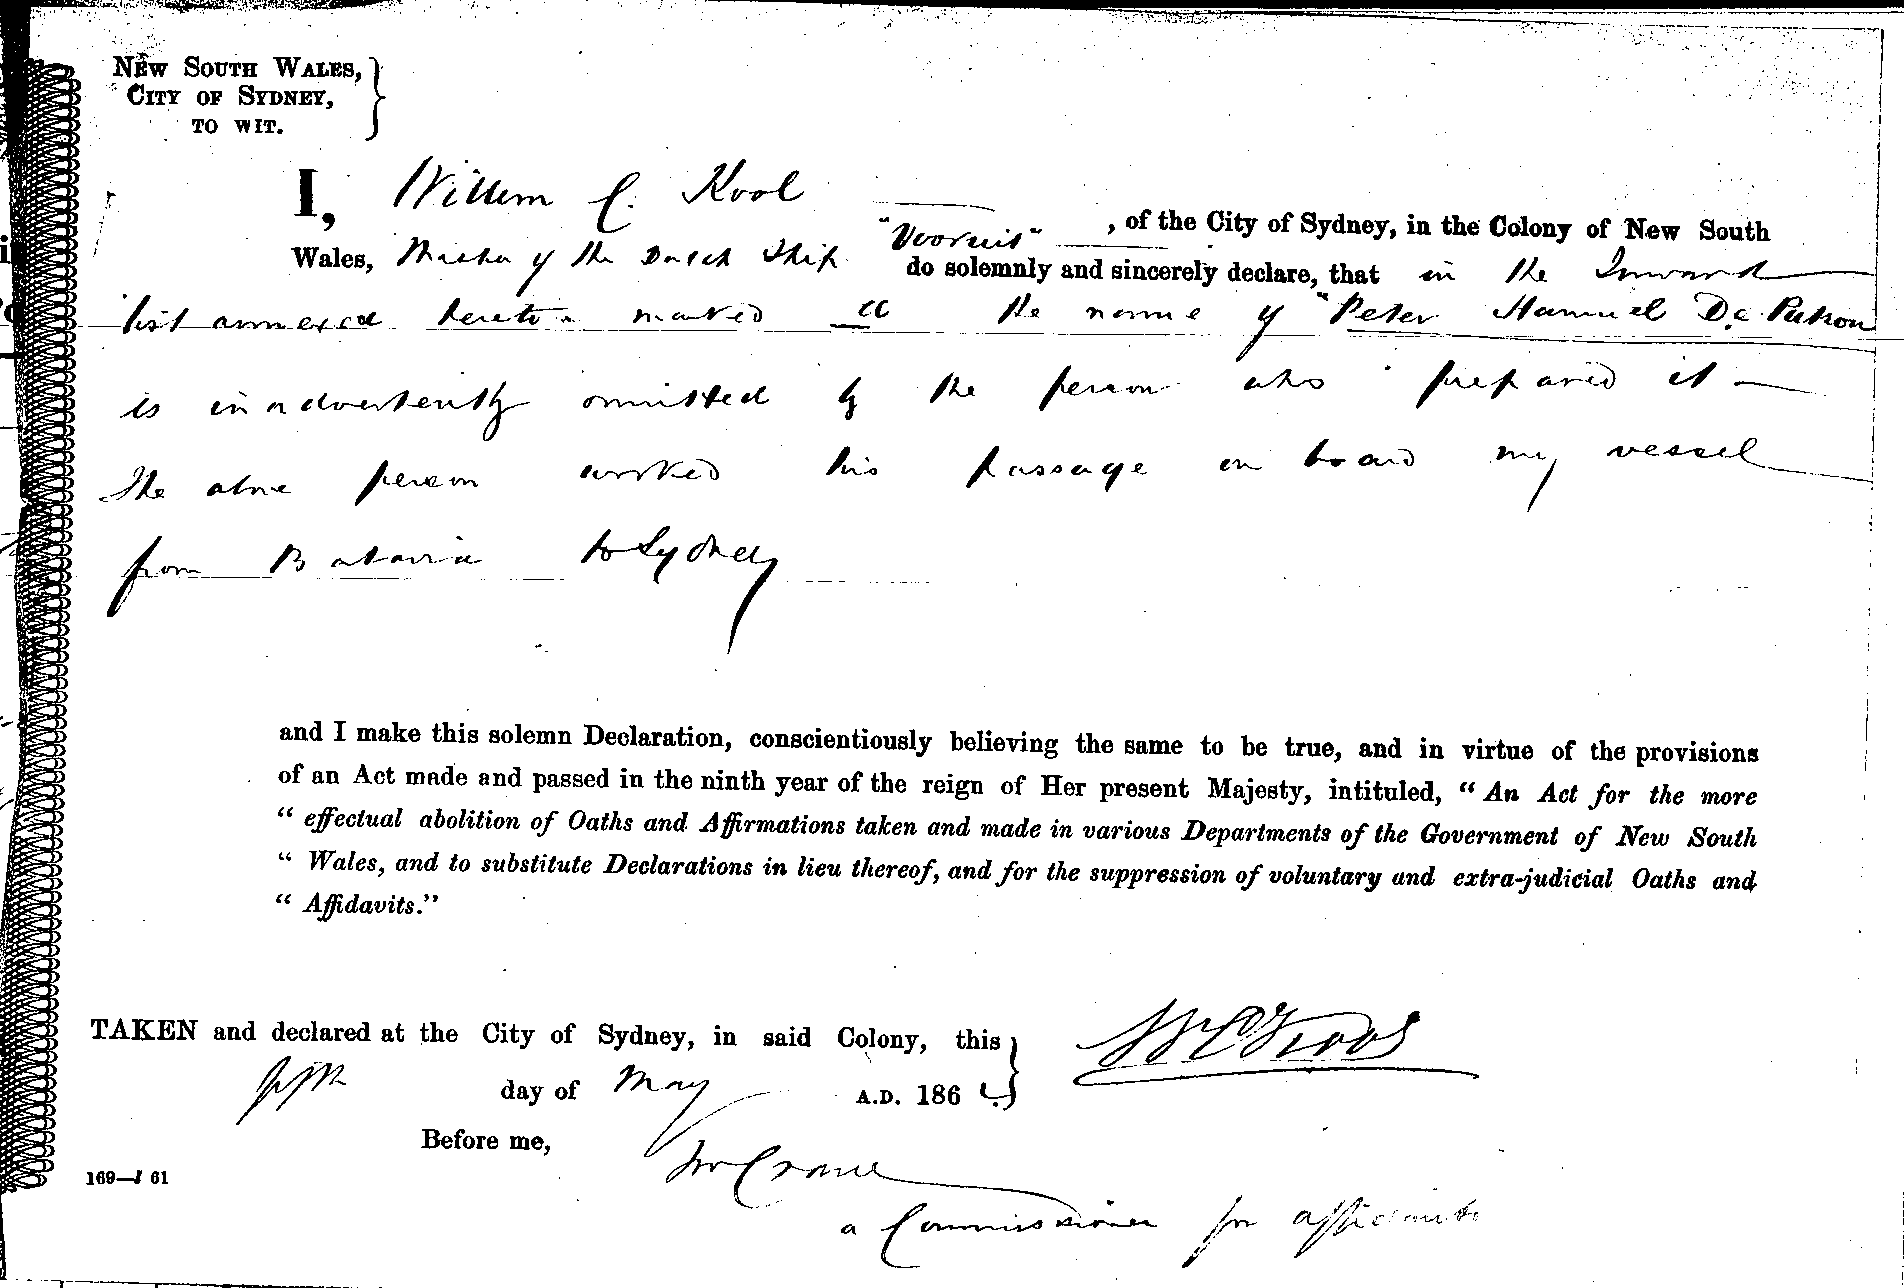 NEW SOUTH WALES,
CITY OF SYDNEY,
TO WIT.
I, Willem C. Kool
, of the City of Sydney, in the Colony of New South
Wales, Master of the Dutch Ship "Vooruit"
do solemnly and sincerely declare, that in the Inward
list annexed hereto marked a the name of "Peter Hamuel De
is inadvertently omitted by the person who prepared it
The above person worked his passage on board my vessel
from Batavia to Sydney
and I make this solemn Declaration, conscientiously believing the same to be true, and in virtue of the provisions
of an Act made and passed in the ninth year of the reign of Her present Majesty, intituled, "An Act for the more
"effectual abolition of Oaths and Affirmations taken and made in various Departments of the Government of New South
"Wales, and to substitute Declarations in lieu thereof, and for the suppression of voluntary and extra-judicial Oaths and
"Affidavits."
TAKEN and declared at the City of Sydney, in said Colony, this
W C Kool
fifth day of May A.D. 186
Before me,
Crane
169—J 61
a Commissioner for affidavits